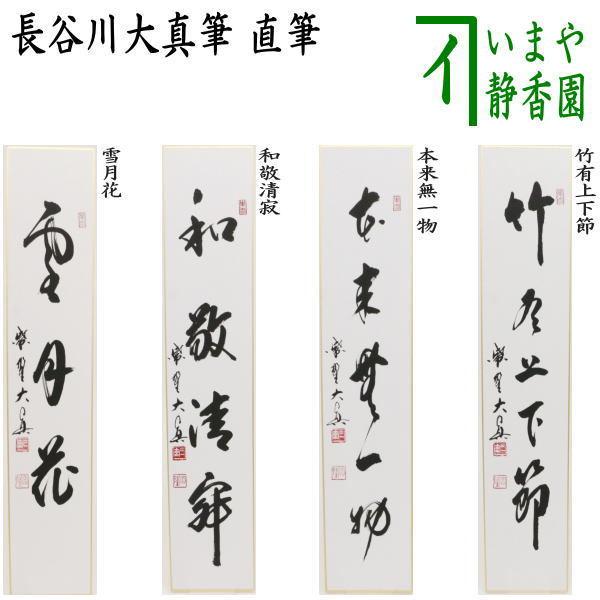 長谷川大真筆 直筆
いまや
静香園
雪月花
雪月花
和敬清寂
和敬清寂
本来無一物
本来無一物
竹有上下節
竹有上下節